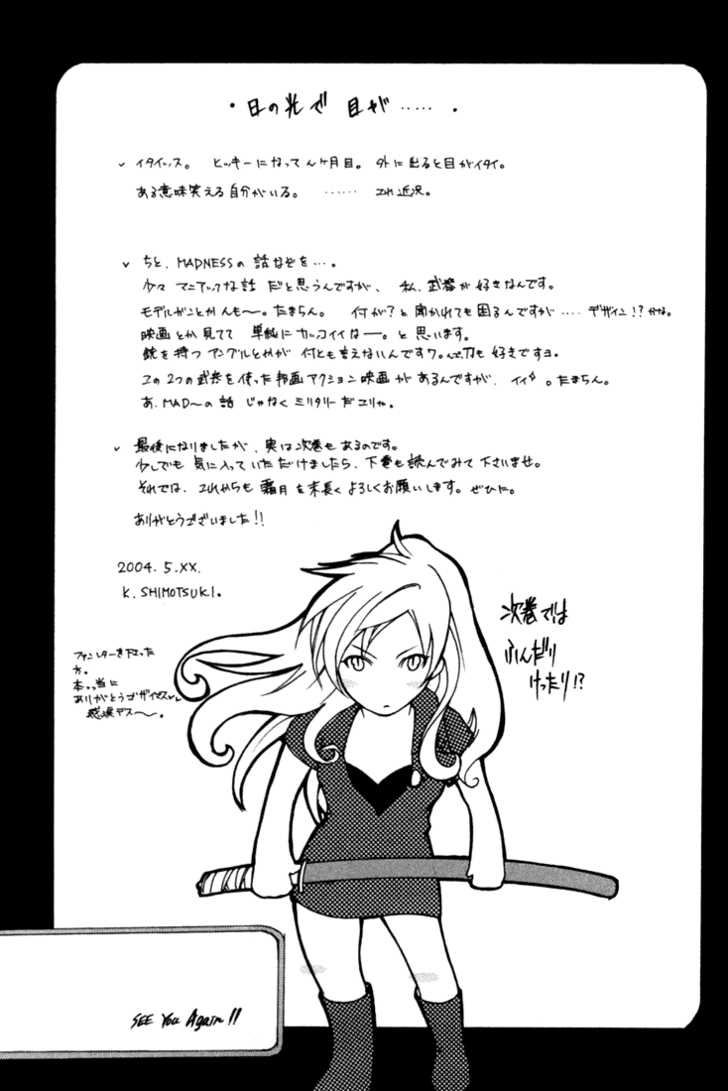 ・日の光で 目が……・
✓ イタイッス。 ヒッキーになってんヶ月目。 外に出ると目がイタイ。
ある意味笑える自分がいる。 …… これ近況。
✓ ちと、MADNESSの 話なぞを…。
少々 マニアックな話 だと思うんですが、 私、武器が好きなんです。
モデルガンとかんも〜。たまらん。 何が?と 聞かれても困るんですが…. デザイン!?かな。
映画とか見てて 単純にカッコイイなー。と 思います。
銃を持つ アングルとかが 何とも言えないんですワ。んで刀も好きですヨ。
この2つの武器を使った邦画アクション映画が あるんですが、イイ。たまらん。
あ、MAD〜の話 じゃなく ミリタリーだこりゃ。
✓ 最後になりましたが、実は次巻もあるのです。
少しでも 気に入っていただけましたら、下巻も読んでみて下さいませ。
それでは、これからも 霜月を末長くよろしくお願いします。ぜひに。
ありがとうございました!!
2004. 5. XX.
K. SHIMOTSUKI.
ファンレターを下さった
方。
本ッ当に
ありがとうゴザイマス
感涙デス〜。
次巻では
ふんだり
けったり!?
SEE You Again!!